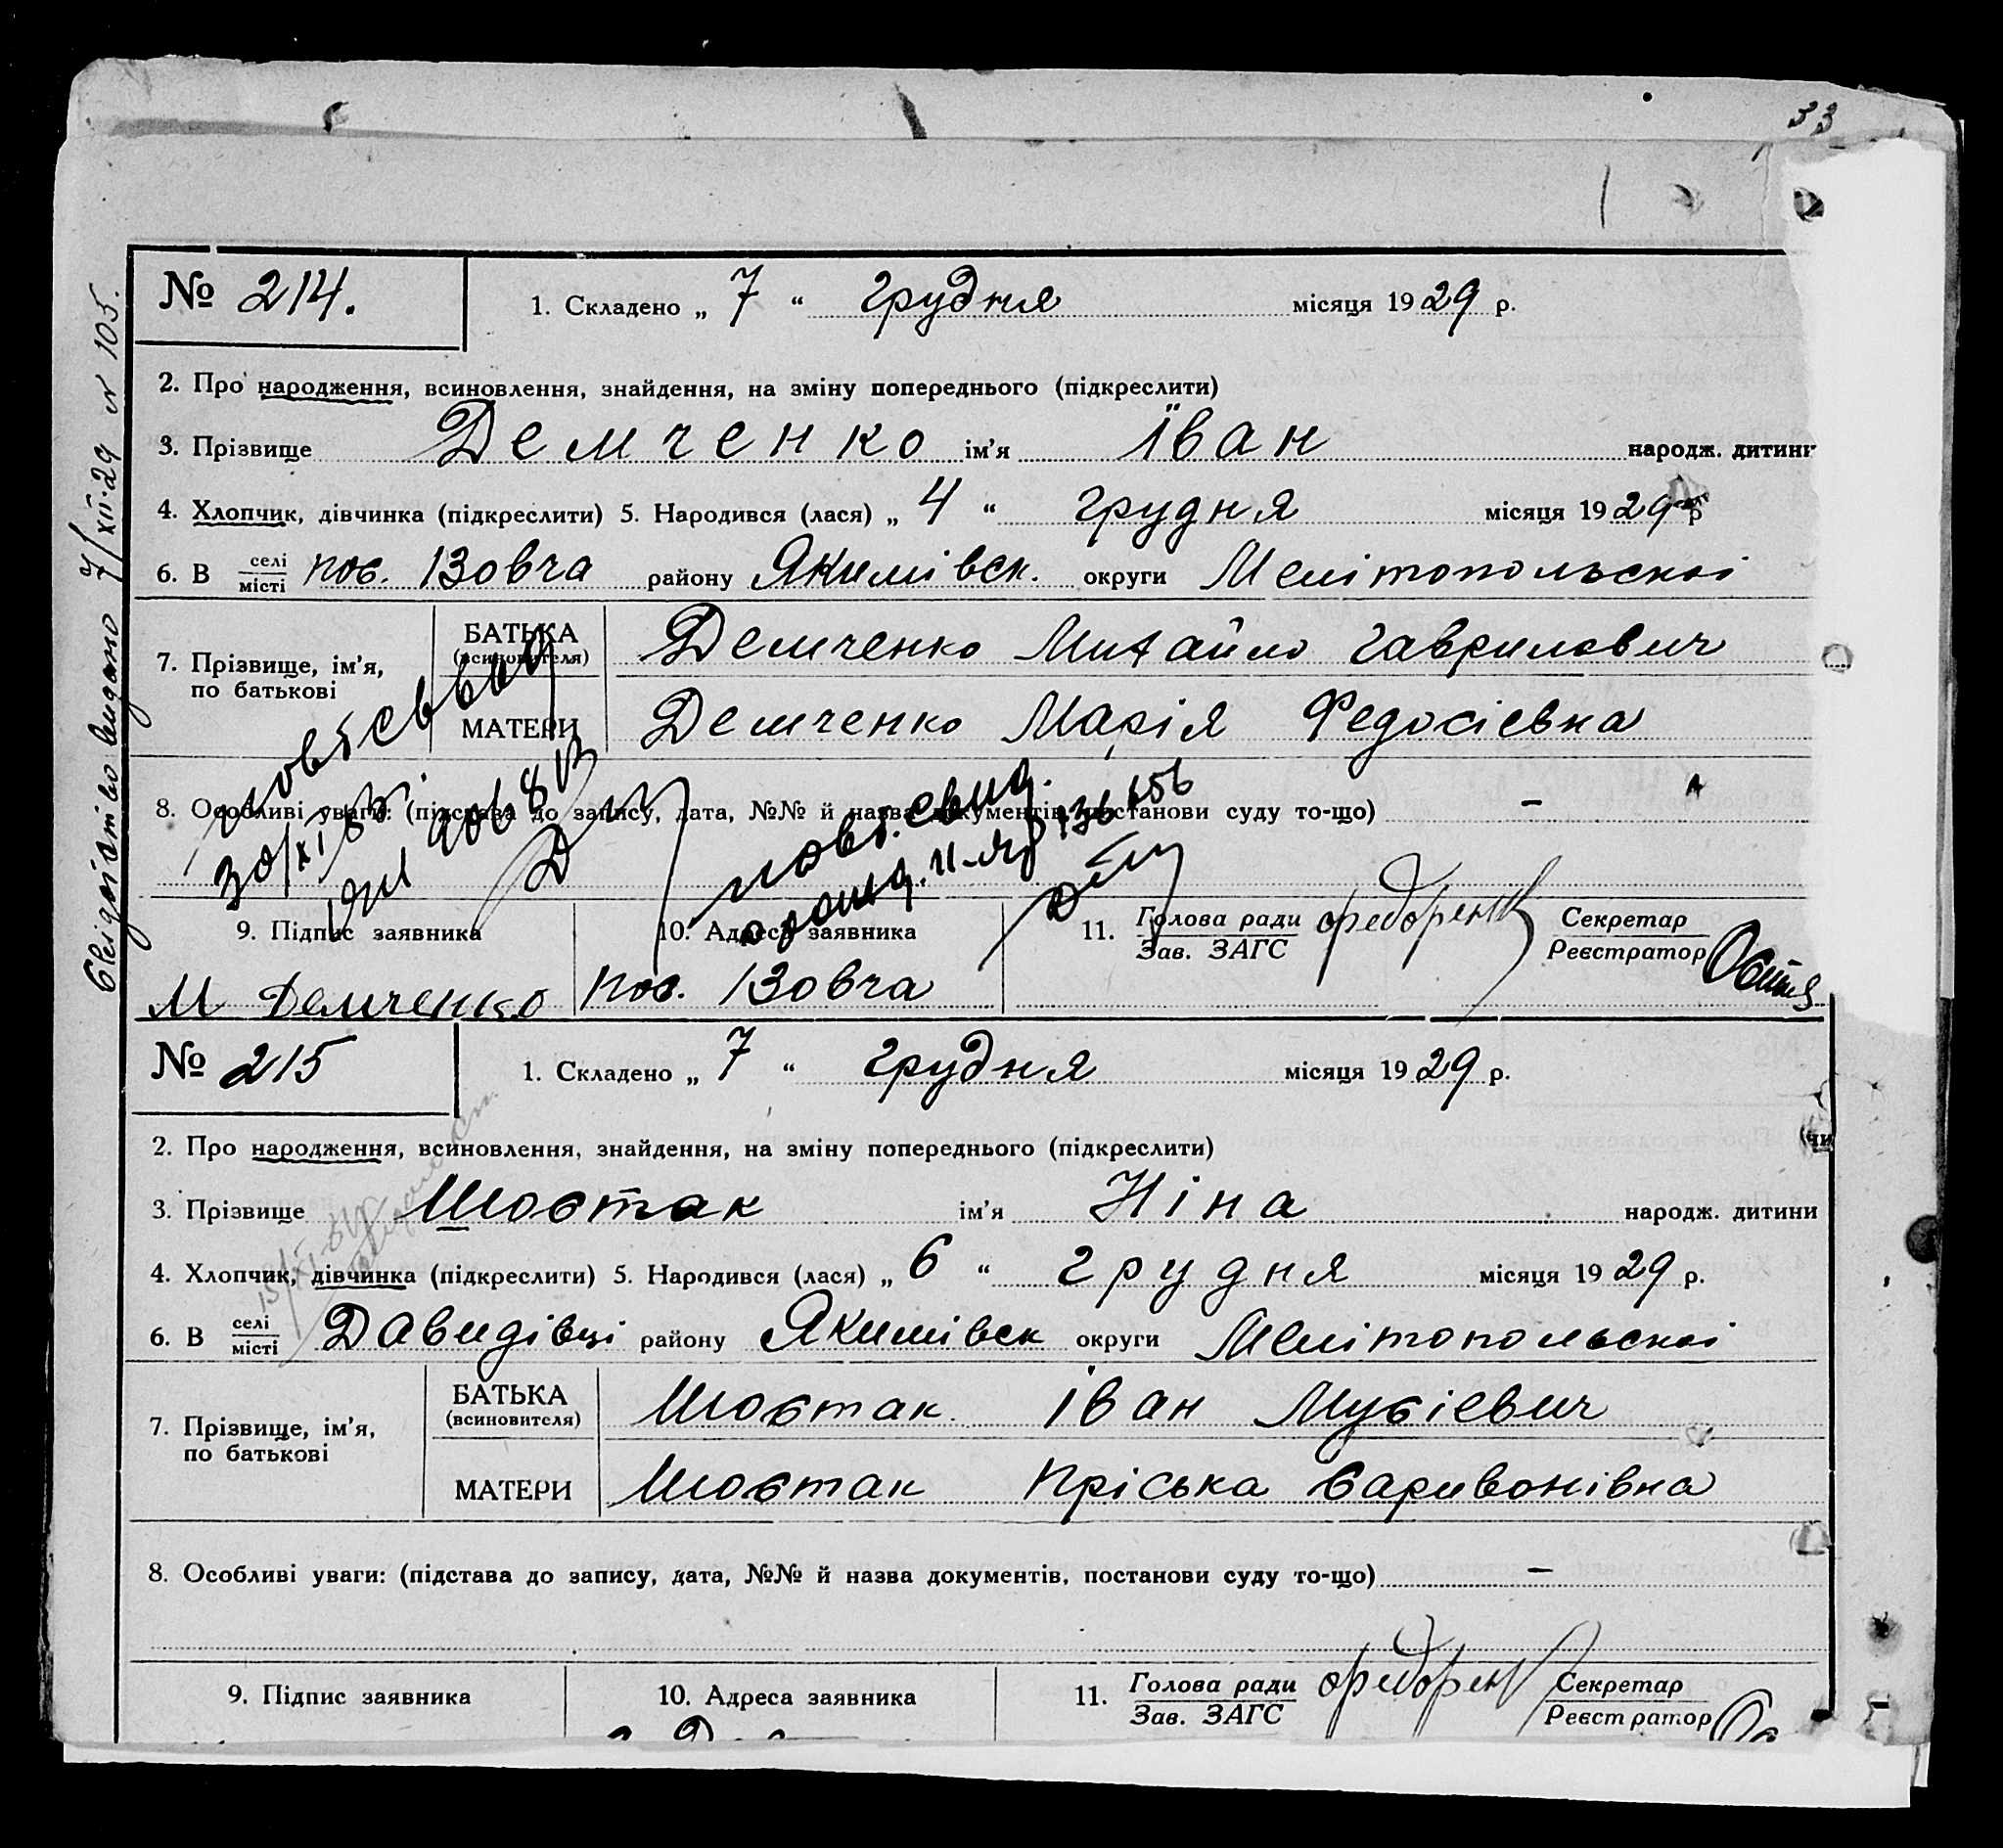 33
№ 214.
1. Складено „ 7 “ грудня місяця 1929 р.
2. Про народження, всиновлення, знайдення, на зміну попереднього (підкреслити)
3. Прізвище Демченко ім’я Їван народж. дитини
4. Хлопчик, дівчинка (підкреслити) 5. Народився (лася) „ 4 “ грудня місяця 1929 р
6. В селі/місті пос. Вовча району Якимівск. округи Мелітопольскоі
7. Прізвище, ім’я, по батькові
БАТЬКА (всиновителя) Демченко Михайло Гаврилович
МАТЕРИ Демченко Марія Федосієвна
8. Особливі уваги: (підстава до запису, дата, №№ й назва документів, постанови суду то-що) —
повт. свид.
9. Підпис заявника
10. Адреса заявника
11. Голова ради/Зав. ЗАГС Федоренко Секретар/Реєстратор
М Демченко
пос. Вовча
7/XII-29 N 105.
№ 215
1. Складено „ 7 “ грудня місяця 1929 р.
2. Про народження, всиновлення, знайдення, на зміну попереднього (підкреслити)
3. Прізвище Шостак ім’я Ніна народж. дитини
4. Хлопчик, дівчинка (підкреслити) 5. Народився (лася) „ 6 “ грудня місяця 1929 р.
6. В селі/місті Давидівці району Якимівск округи Мелітопольскоі
7. Прізвище, ім’я, по батькові
БАТЬКА (всиновителя) Шостак Іван Мусієвич
МАТЕРИ Шостак Пріська Саривонівна
8. Особливі уваги: (підстава до запису, дата, №№ й назва документів, постанови суду то-що) —
9. Підпис заявника
10. Адреса заявника
11. Голова ради/Зав. ЗАГС Федорен Секретар/Реєстратор